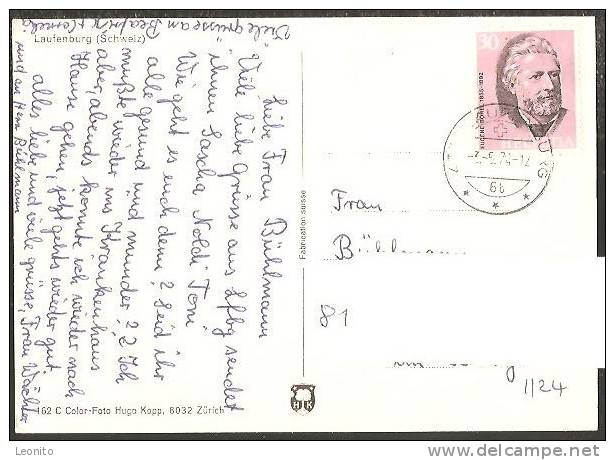 Laufenburg (Schweiz)
Viele grüsse an Beatrix + Cornelia
Liebe Frau Bühlmann
Viele liebe Grüsse aus Lfbg sendet
ihnen Sascha, Noldi. Toni
Wie geht es euch denn? seid ihr
alle gesund und munder?? Ich
mußte wieder ins Krankenhaus
aber abends konnte ich wieder nach
Hause gehen, jetzt gehts wieder gut
alles liebe und viele grüsse, Frau Wächter
und an Herr Bühlmann
162 C Color-Foto Hugo Kopp, 8032 Zürich
Fabrication suisse
H K
30
EUGÈNE BOREL 1835-1892
HELVETIA
Frau
Bühlmann
81
1124
delcampe.net
Leonito